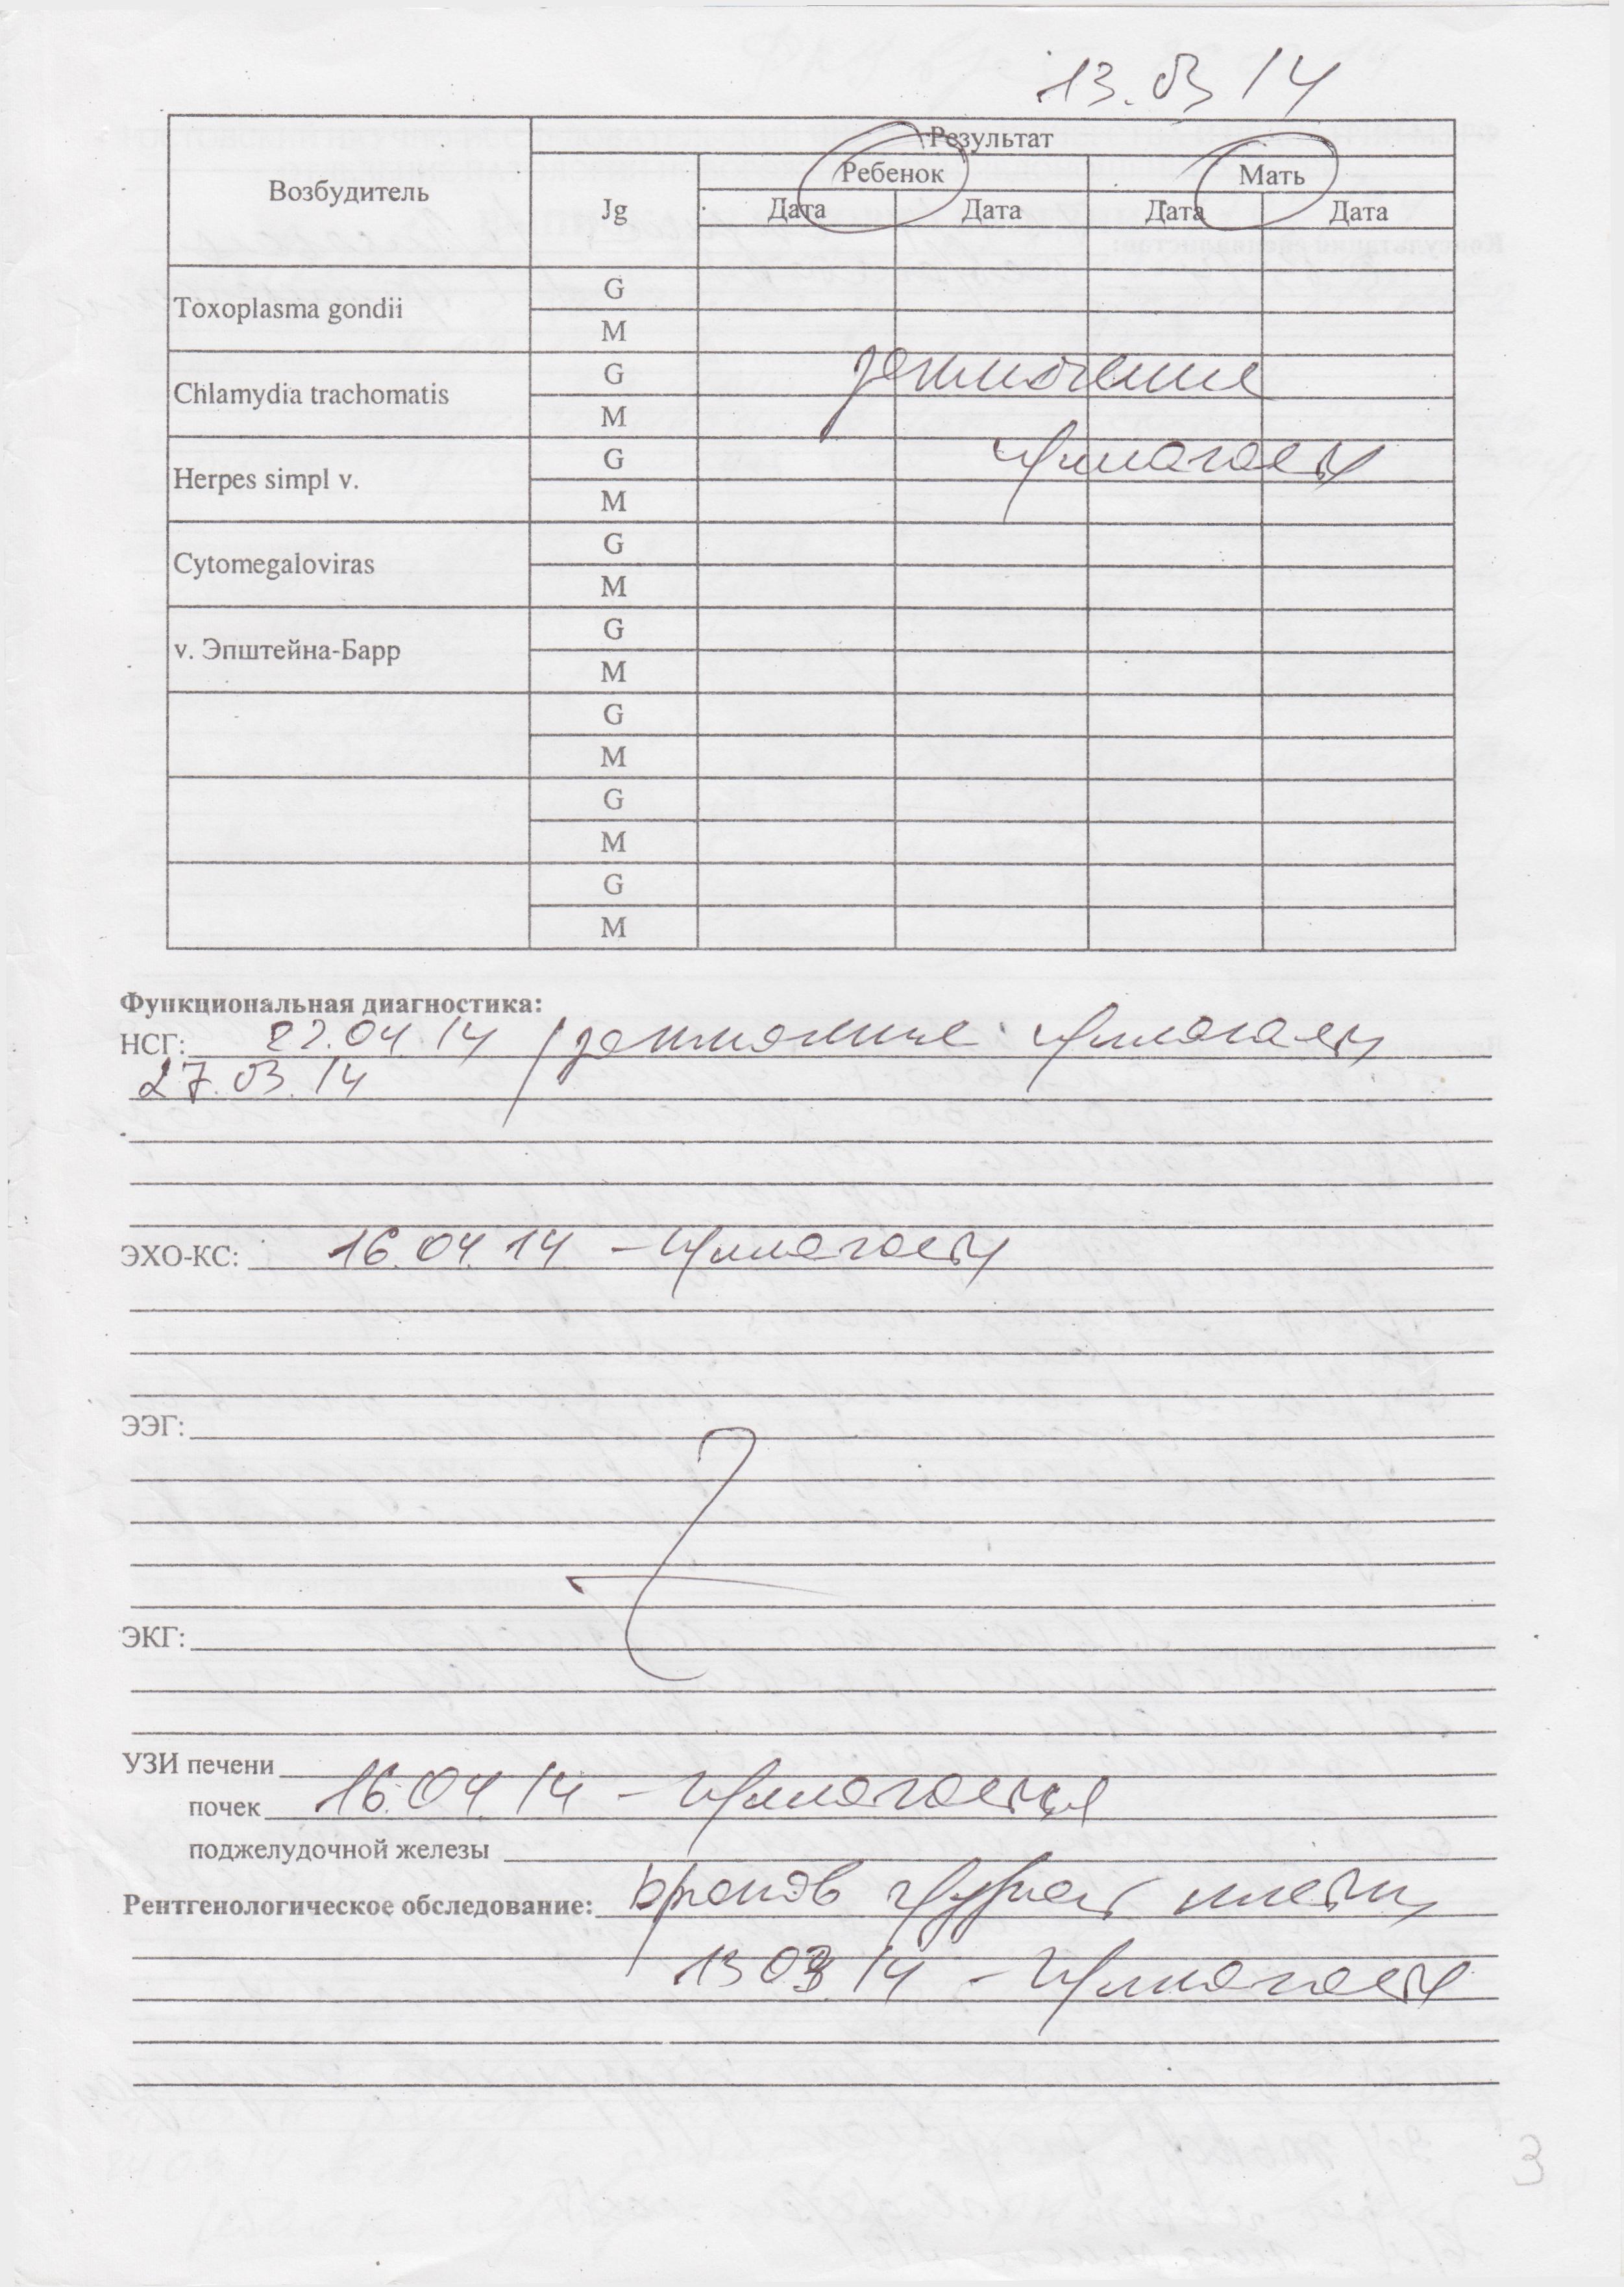 13.03 14
Результат
Возбудитель Jg Ребенок Мать
Дата Дата Дата Дата
Toxoplasma gondii G
M
Chlamydia trachomatis G заключение
M
Herpes simpl v. G прилагается
M
Cytomegaloviras G
M
v. Эпштейна-Барр G
M
G
M
G
M
G
M
Функциональная диагностика:
НСГ: .04.14 заключение прилагается
27.03.14
ЭХО-КС: 16.04.14 – прилагается
ЭЭГ:
ЭКГ:
УЗИ печени
почек 16.04.14 – прилагается
поджелудочной железы
Рентгенологическое обследование: органов грудной клетки
13 03.14 – прилагается
3